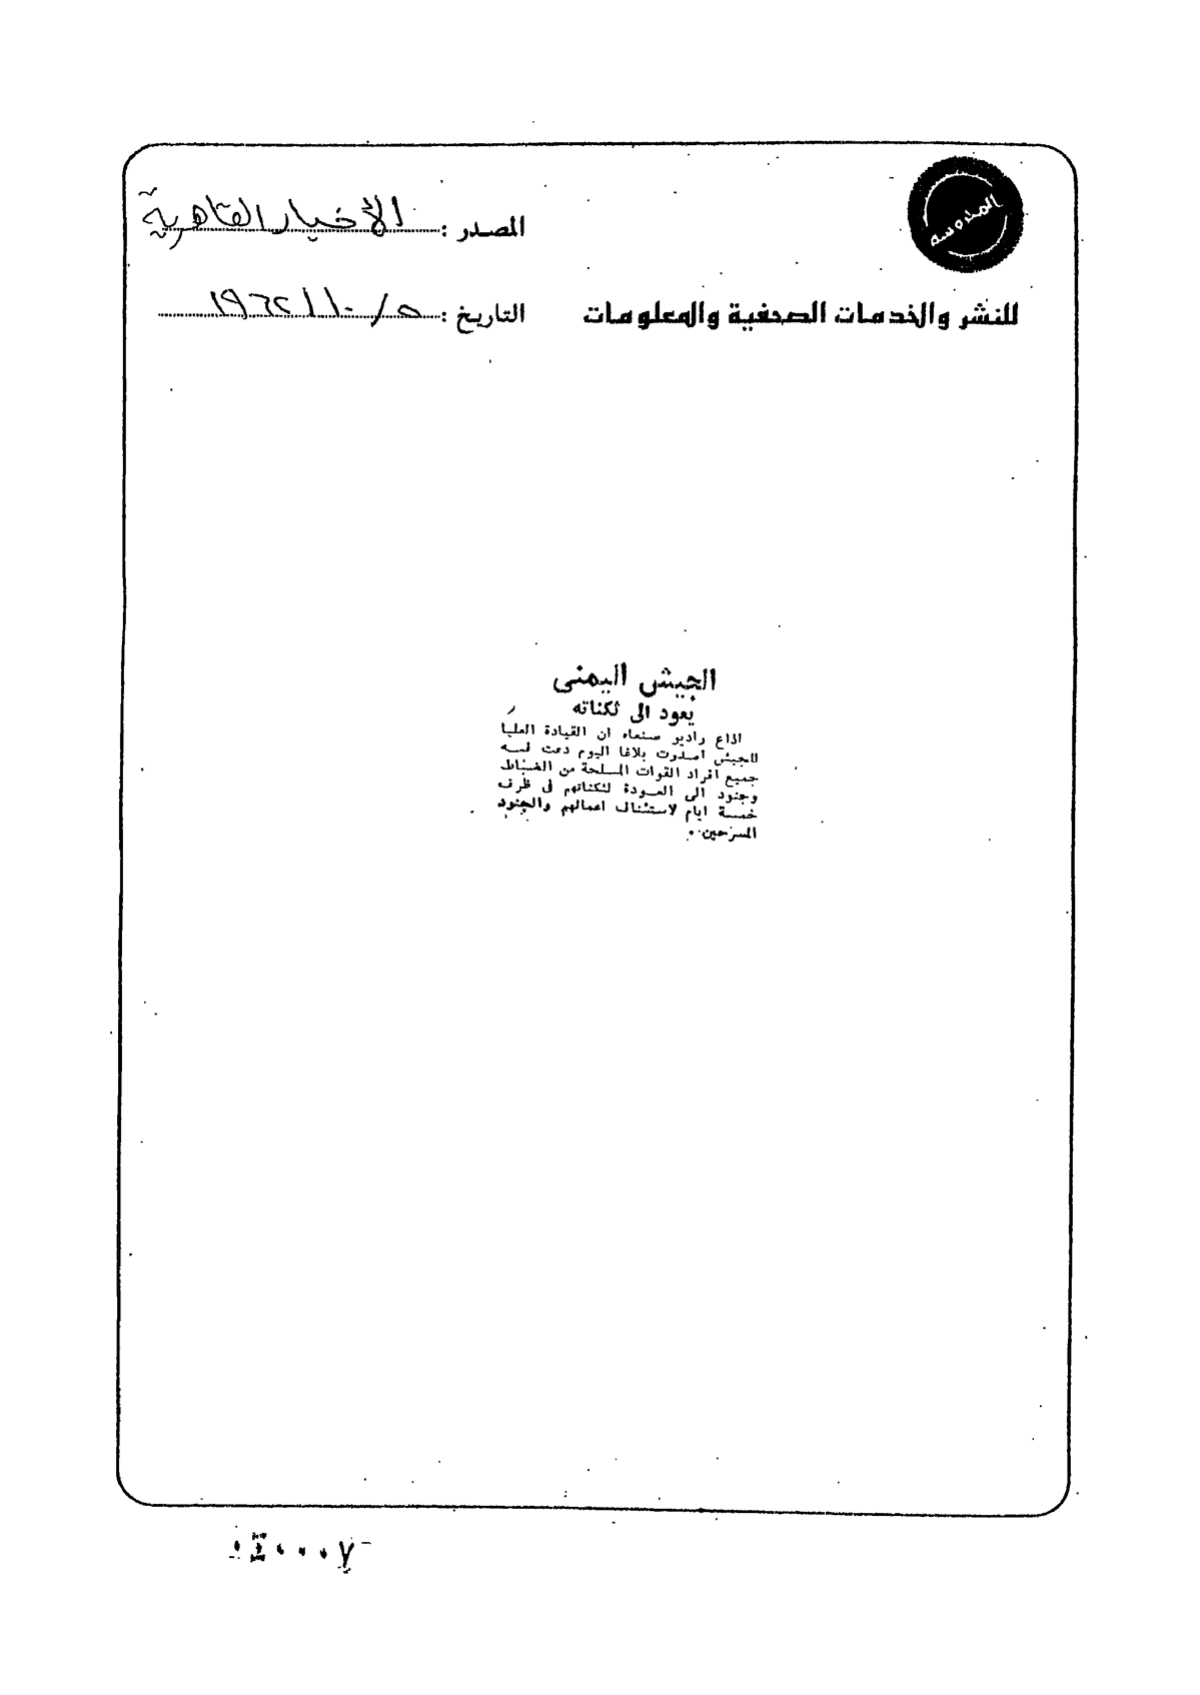 المدوسه
المصدر : الأخبار القاهرية
للنشر والخدمات الصحفية والمعلومات
التاريخ : ٥/١٠/١٩٦٢
الجيش اليمنى
يعود الى ثكناته
اذاع راديو صنعاء ان القيادة العليا
للجيش اصدرت بلاغا اليوم دعت فيه
جميع افراد القوات المسلحة من الضباط
وجنود الى العودة لثكناتهم فى ظرف
خمسة ايام لاستئناف اعمالهم والجنود
المسرحين .